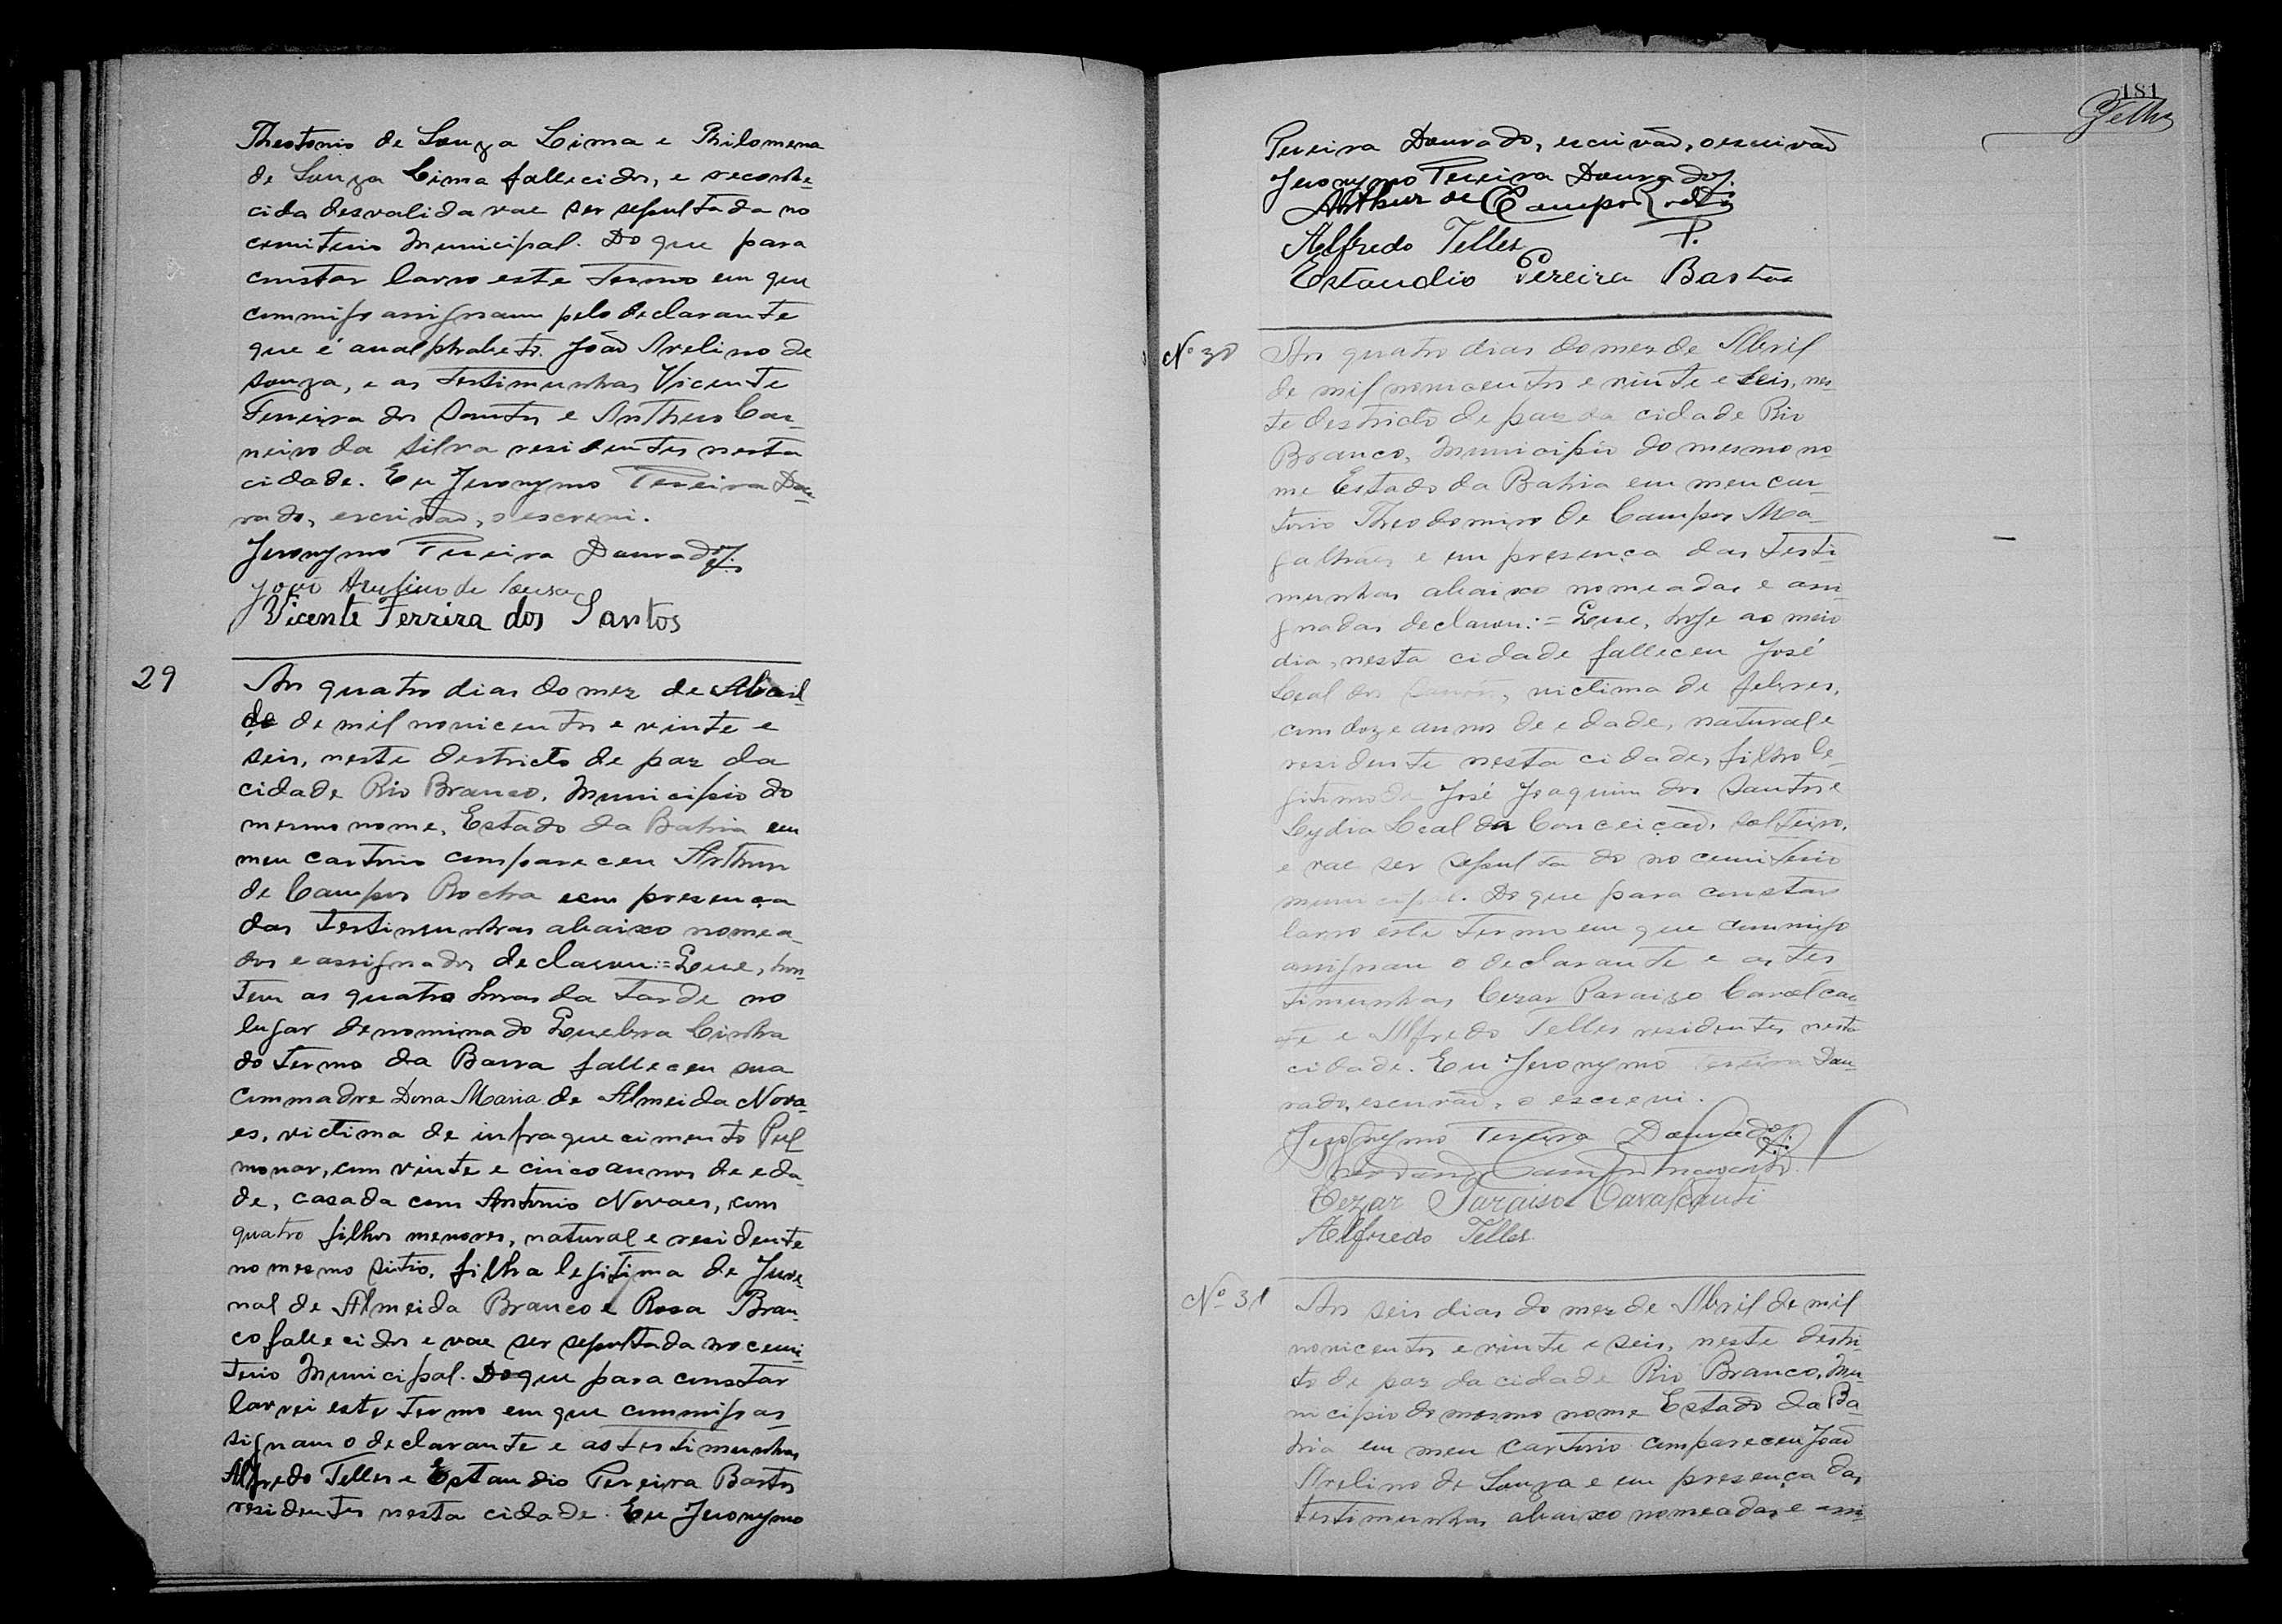 Theotonio de Souza Lima e Philomena
de Souza Lima fallecidos, e reconhe-
cida desvalida vae ser sepultada no
cemiterio Municipal. Do que para
constar lavro este termo em que
commigo assignam pelo declarante
que é analphabeto. João Avelino de
Souza, e as testimunhas Vicente
Ferreira dos Santos e Anthero Car-
neiro da Silva residentes nesta
cidade. Eu Jeronymo Pereira Dou-
rado, escrivão, o escrevi.
Jeronymo Pereira Dourado
João Avelino de Souza
Vicente Ferrira dos Santos
29
Aos quatro dias do mez de Abril
de de mil novicentos e vinte e
seis, neste destricto de paz da
cidade Rio Branco, Municipio do
mesmo nome, Estado da Bahia em
meu cartorio compareceu Arthur
de Campos Rocha e em presença
das testimunhas abaixo nomea-
dos e assignados declarou:= Que, hon-
tem as quatro horas da tarde no
lugar denominado Quebra Linha
do termo da Barra falleceu sua
commadre Dona Maria de Almeida Nova-
es, victima de infraquecimento Pul
monar, com vinte e cinco annos de eda-
de, casada com Antonio Novaes, com
quatro filhos menores, natural e residente
no mesmo sitio, filha legitima de Juve-
nal de Almeida Branco e Rosa Bran-
co fallecidos e vae ser sepultada no cemi-
terio Municipal. Do que para constar
lavrei este termo em que commigo as-
signam o declarante e as testimunhas
Alfredo Telles e Estaudio Pereira Bastos
residentes nesta cidade. Eu Jeronymo
181
Pereira Dourado, escrivão, o escrivão
Jeronymo Pereira Dourado
Arthur de Campos Rocha
P.
Alfredo Telles
Estaudio Pereira Bastos
Nº 30
Aos quatro dias do mez de Abril
de mil novicentos e vinte e seis, nes-
te destricto de paz da cidade Rio
Branco, Municipio do mesmo no-
me Estado da Bahia em meu car-
torio Theodomiro de Campos Ma-
galhães e em presença das testi-
munhas abaixo nomeadas e assi-
gnadas declarou:= Que, hoje ao meio
dia, nesta cidade falleceu José
Leal dos Santos, victima de febres,
com doze annos de edade, natural e
residente nesta cidade, filho le-
gitimo de José Joaquim dos Santos e
Lydia Leal da Conceição, solteiro,
e vae ser sepultado no cemiterio
municipal. Do que para constar
lavro este termo em que commigo
assignam o declarante e as tes-
timunhas Cezar Paraizo Cavalcan-
te e Alfredo Telles residentes nesta
cidade. Eu Jeronymo Pereira Dou-
rado, escrivão, o escrevi.
Jeronymo Pereira Dourado
Cezar Paraiso Cavalcanti
Alfredo Telles
Nº 31
Aos seis dias do mez de Abril de mil
novicentos e vinte e seis, neste destri-
to de paz da cidade Rio Branco, Mu-
nicipio do mesmo nome Estado da Ba-
hia em meu cartorio compareceu João
Avelino de Souza e em presença das
testimunhas abaixo nomeadas e assi-